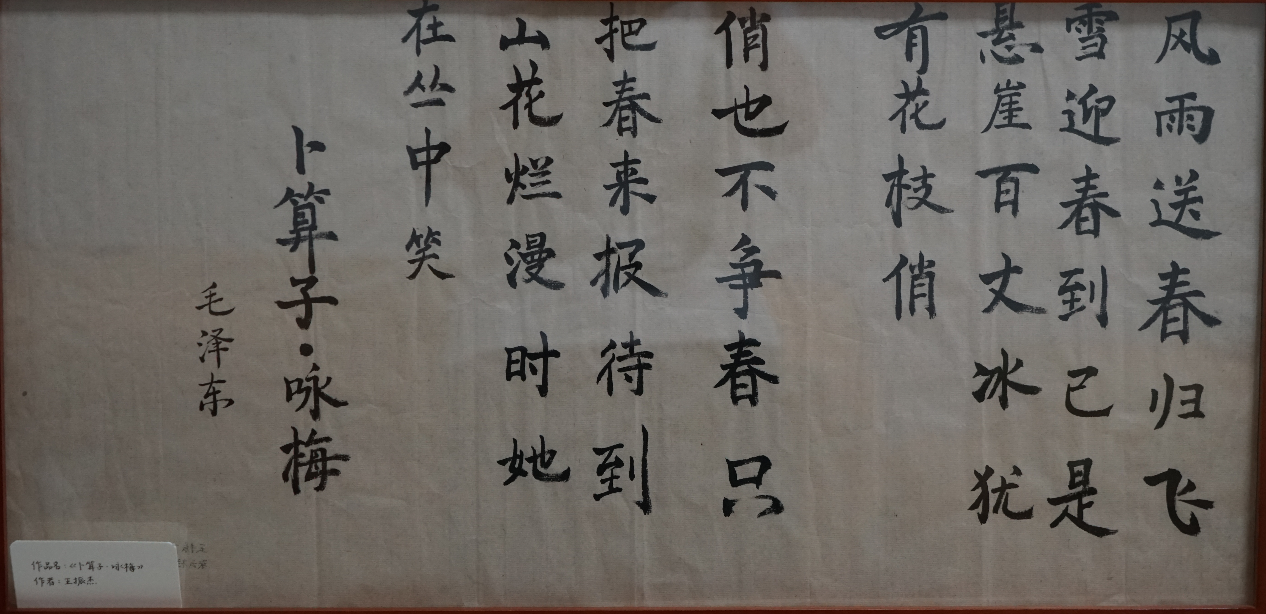 风雨送春归飞
雪迎春到已是
悬崖百丈冰犹
有花枝俏
俏也不争春只
把春来报待到
山花烂漫时她
在丛中笑
卜算子·咏梅
毛泽东
作品名：《卜算子·咏梅》
作者：王振杰